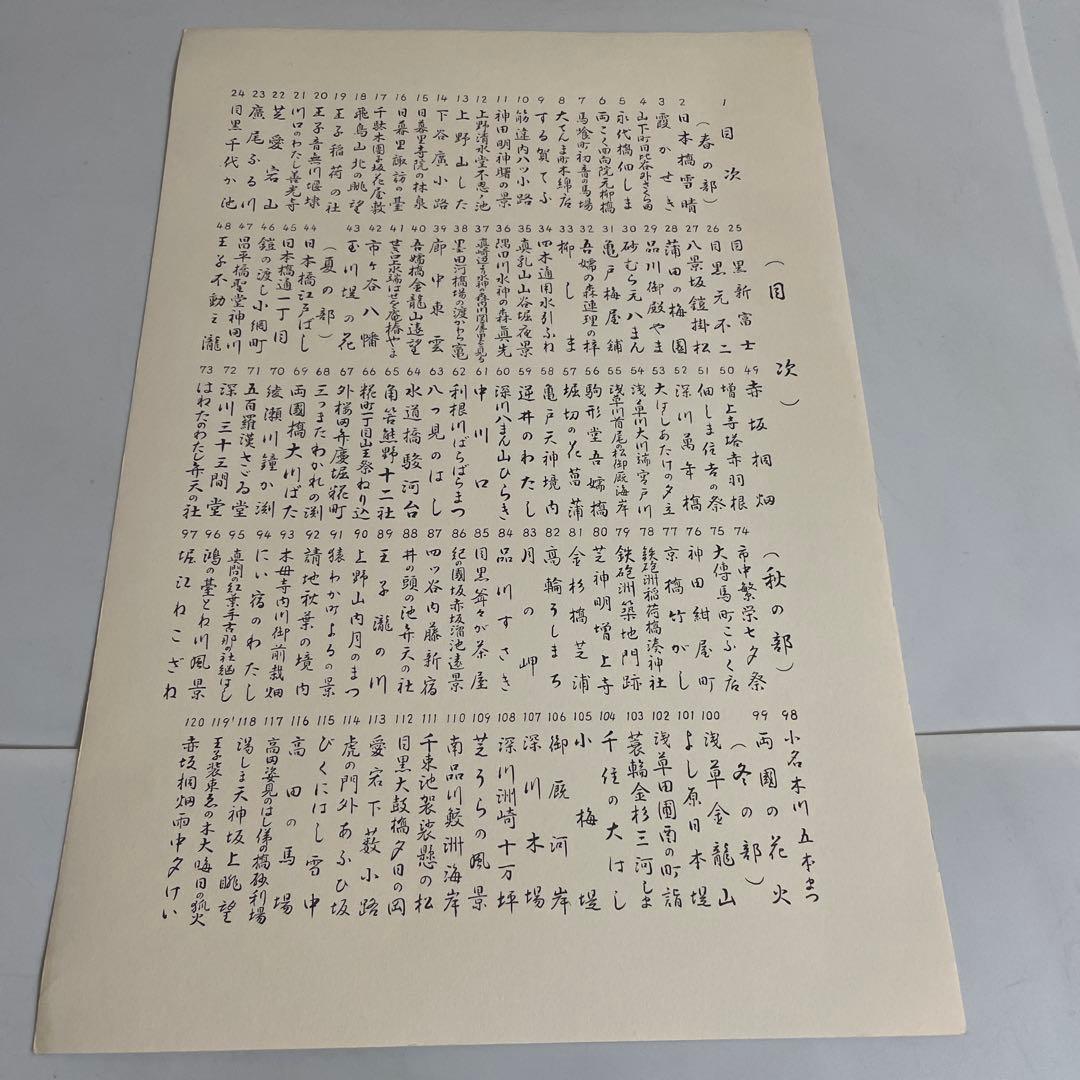 (目次)
1 目次
(春の部)
2 日本橋雪晴
3 霞かせき
4 山下町日比谷外さくら田
5 永代橋佃しま
6 両こく回向院元柳橋
7 馬喰町初音の馬場
8 大てんま町木綿店
9 する賀てふ
10 筋違内八ツ小路
11 神田明神曙の景
12 上野清水堂不忍ノ池
13 上野山した
14 下谷廣小路
15 日暮里寺院の林泉
16 日暮里諏訪の臺
17 千駄木團子坂花屋敷
18 飛鳥山北の眺望
19 王子稲荷の社
20 王子音無川堰埭
21 川口のわたし善光寺
22 芝愛宕山
23 廣尾ふる川
24 目黒千代か池
25 目黒新富士
26 目黒元不二
27 八景坂鎧掛松
28 蒲田の梅園
29 品川御殿やま
30 砂むら元八まん
31 亀戸梅屋舗
32 吾嬬の森連理の梓
33 柳しま
34 四木通用水引ふね
35 真乳山山谷堀夜景
36 隅田川水神の森真先
37 真崎辺より水神の森内川関屋の里を見る
38 墨田河橋場の渡かわら竈
39 廓中東雲
40 吾嬬橋金龍山遠望
41 せき口上水端はせを庵椿やま
42 市ヶ谷八幡
43 玉川堤の花
(夏の部)
44 日本橋江戸ばし
45 日本橋通一丁目
46 鎧の渡し小網町
47 昌平橋聖堂神田川
48 王子不動之瀧
49 赤坂桐畑
50 増上寺塔赤羽根
51 佃しま住吉の祭
52 深川萬年橋
53 大はしあたけの夕立
54 浅草川大川端宮戸川
55 浅草川首尾の松御厩海岸
56 駒形堂吾嬬橋
57 堀切の花菖蒲
58 亀戸天神境内
59 逆井のわたし
60 深川八まん山ひらき
61 中川口
62 利根川ばらばらまつ
63 八つ見のはし
64 水道橋駿河台
65 角筈熊野十二社
66 糀町一丁目山王祭ねり込
67 外桜田弁慶堀糀町
68 三つまたわかれの渕
69 両國橋大川ばた
70 綾瀬川鐘か渕
71 五百羅漢さゞゐ堂
72 深川三十三間堂
73 はねたのわたし弁天の社
(秋の部)
74 市中繁栄七夕祭
75 大傳馬町こふく店
76 神田紺屋町
77 京橋竹がし
78 鉄砲洲稲荷橋湊神社
79 鉄砲洲築地門跡
80 芝神明増上寺
81 金杉橋芝浦
82 高輪うしまち
83 月の岬
84 品川すさき
85 目黒爺々が茶屋
86 紀の國坂赤坂溜池遠景
87 四ッ谷内藤新宿
88 井の頭の池弁天の社
89 王子瀧の川
90 上野山内月のまつ
91 猿わか町よるの景
92 請地秋葉の境内
93 木母寺内川御前栽畑
94 にい宿のわたし
95 真間の紅葉手古那の社継はし
96 鴻の臺とね川風景
97 堀江ねこざね
98 小名木川五本まつ
99 両國の花火
(冬の部)
100 浅草金龍山
101 よし原日本堤
102 浅草田圃酉の町詣
103 蓑輪金杉三河しま
104 千住の大はし
105 小梅堤
106 御厩河岸
107 深川木場
108 深川洲崎十万坪
109 芝うらの風景
110 南品川鮫洲海岸
111 千束池袈裟懸の松
112 目黒太鼓橋夕日の岡
113 愛宕下薮小路
114 虎の門外あふひ坂
115 びくにはし雪中
116 高田の馬場
117 高田姿見のはし俤の橋砂利場
118 湯しま天神坂上眺望
119 王子装束ゑの木大晦日の狐火
120 赤坂桐畑雨中夕けい